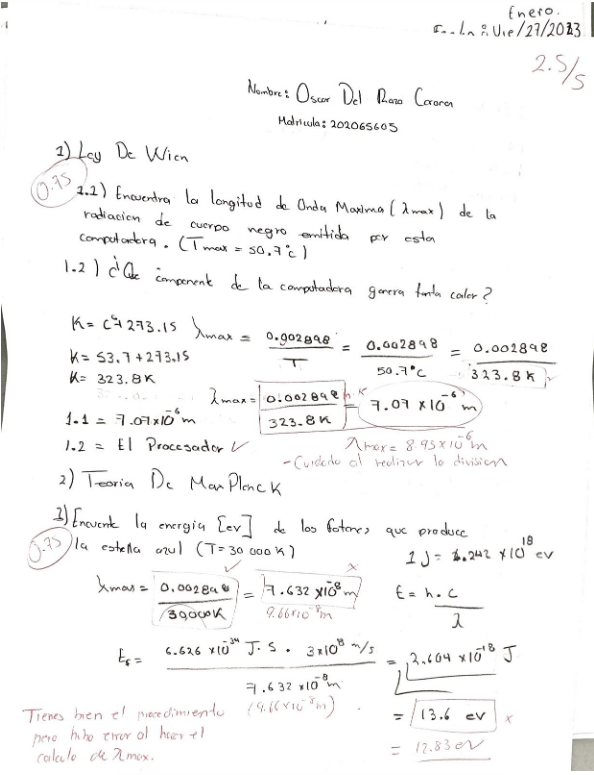 Enero.
Vie/27/2023
2.5/5
Nombre: Oscar Del Razo
Matricula: 202065605
1) Ley De Wien
0.75
1.1) Encuentra la longitud de Onda Maxima (λmax) de la
radiacion de cuerpo negro emitida por esta
computadora. (Tmax = 50.7°c)
1.2) ¿Que componente de la computadora genera tanto calor?
K = C°+273.15 λmax = 0.002898 / T = 0.002898 / 50.7°C = 0.002898 / 323.8K
K = 53.7+273.15
K = 323.8K
λmax = 0.002898 m·K / 323.8K = 7.07 x10⁻⁶ m
1.1 = 7.07x10⁻⁶ m
1.2 = El Procesador ✓
λmax = 8.95x10⁻⁶ m
- Cuidado al realizar la division
2) Teoria De Max Planck
1) Encuentre la energia [ev] de los fotones que produce
0.75
la estrella azul (T=30 000K)
1J = 6.242 x10¹⁸ ev
λmax = 0.002898 / 30000K ✓ = 7.632 x10⁻⁸ m x
9.66x10⁻⁸ m
E = h.c / λ
Ef = 6.626 x10⁻³⁴ J.S . 3x10⁸ m/s / 7.632 x10⁻⁸ m = 2.604 x10⁻¹⁸ J
(9.66x10⁻⁸ m)
= 13.6 ev x
= 12.83 eV
Tienes bien el procedimiento
pero hubo error al hacer el
calculo de λmax.